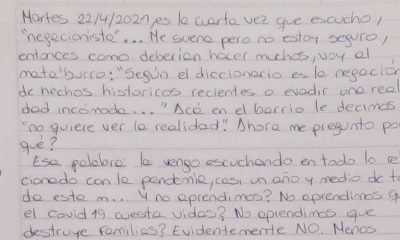 Martes 22/4/2021, es la cuarta vez que escucho,
"negacionista"... Me suena pero no estoy seguro,
entonces como deberían hacer muchos, voy al
mata"burro: "Según el diccionario es la negación
de hechos historicos recientes o evadir una reali
dad incómoda..." Acá en el barrio le decimos
"no quiere ver la realidad". Ahora me pregunto por
qué?
Esa palabra la vengo escuchando en todo lo rela
cionado con la pandemia, casi un año y medio de to
da esta m... Y no aprendimos? No aprendimos que
el Covid 19 cuesta vidas? No aprendimos que
destruye familias? Evidentemente NO. Menos